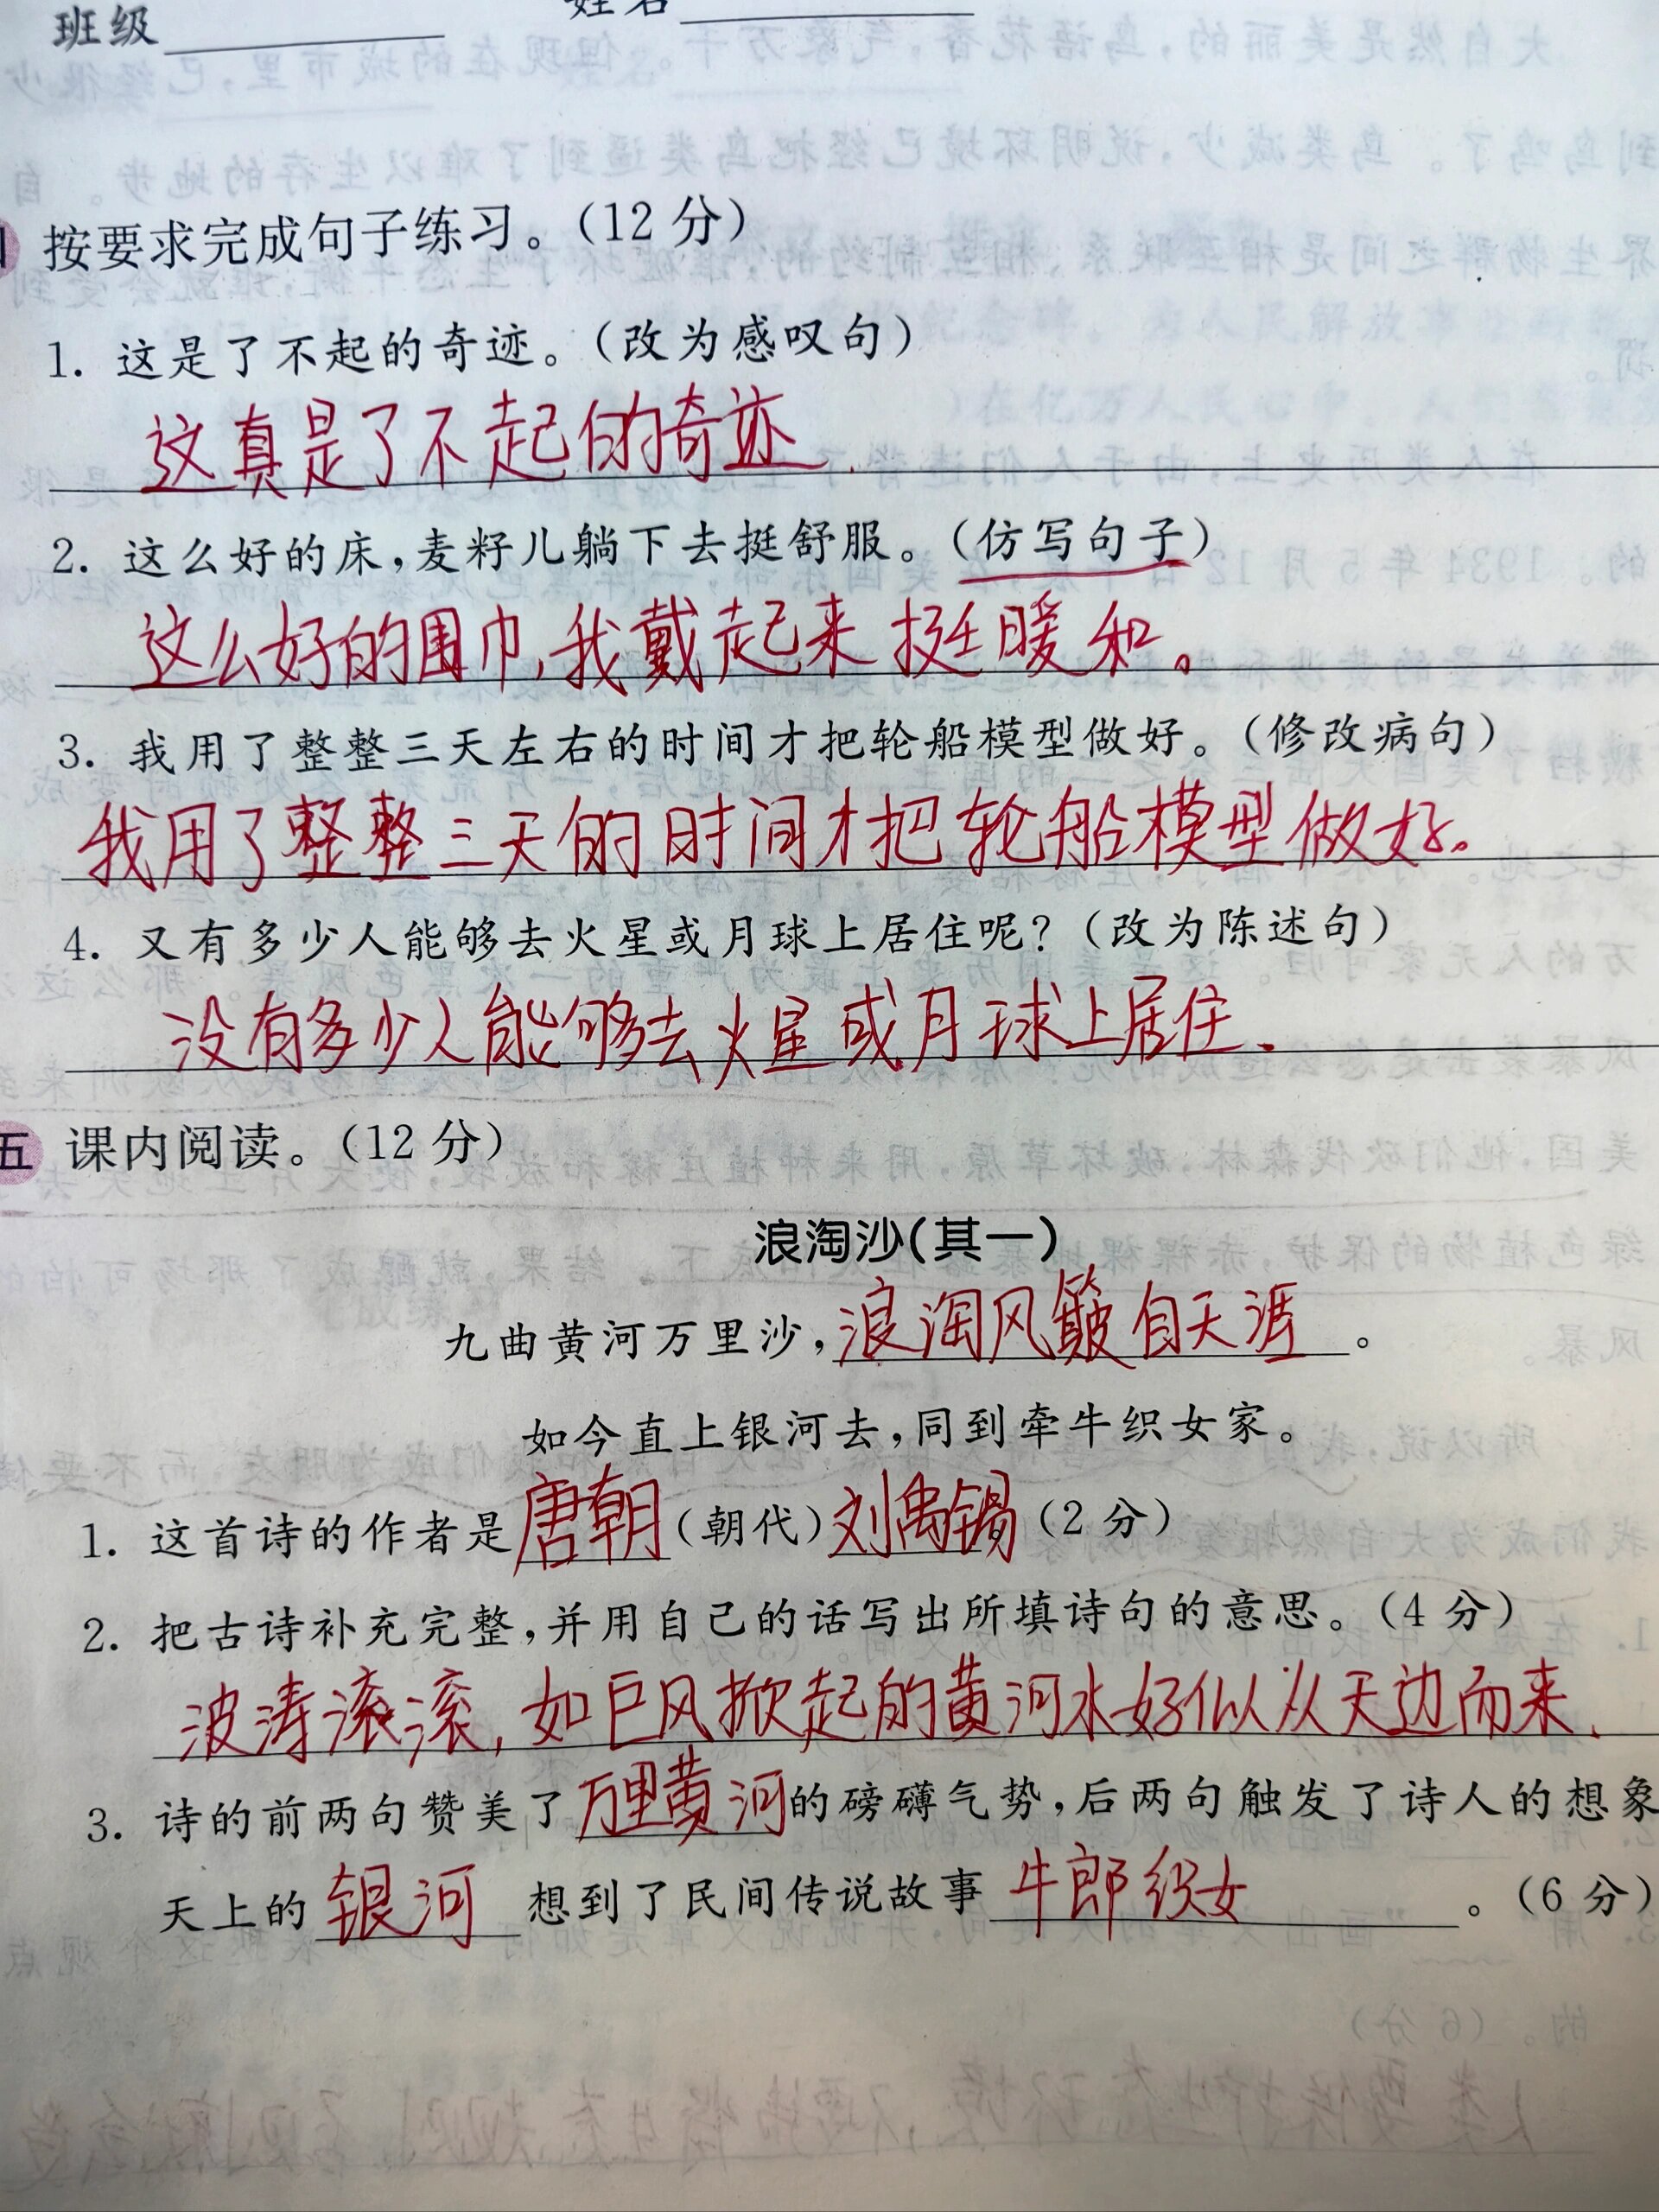 班级 姓名
按要求完成句子练习。(12 分)
1. 这是了不起的奇迹。(改为感叹句)
这真是了不起的奇迹.
2. 这么好的床,麦籽儿躺下去挺舒服。(仿写句子)
这么好的围巾,我戴起来挺暖和。
3. 我用了整整三天左右的时间才把轮船模型做好。(修改病句)
我用了整整三天的时间才把轮船模型做好。
4. 又有多少人能够去火星或月球上居住呢?(改为陈述句)
没有多少人能够去火星或月球上居住.
五 课内阅读。(12 分)
浪淘沙(其一)
九曲黄河万里沙,浪淘风簸自天涯。
如今直上银河去,同到牵牛织女家。
1. 这首诗的作者是唐朝(朝代)刘禹锡(2 分)
2. 把古诗补充完整,并用自己的话写出所填诗句的意思。(4 分)
波涛滚滚,如巨风掀起的黄河水好似从天边而来.
3. 诗的前两句赞美了万里黄河的磅礴气势,后两句触发了诗人的想象
天上的银河想到了民间传说故事牛郎织女。(6 分)